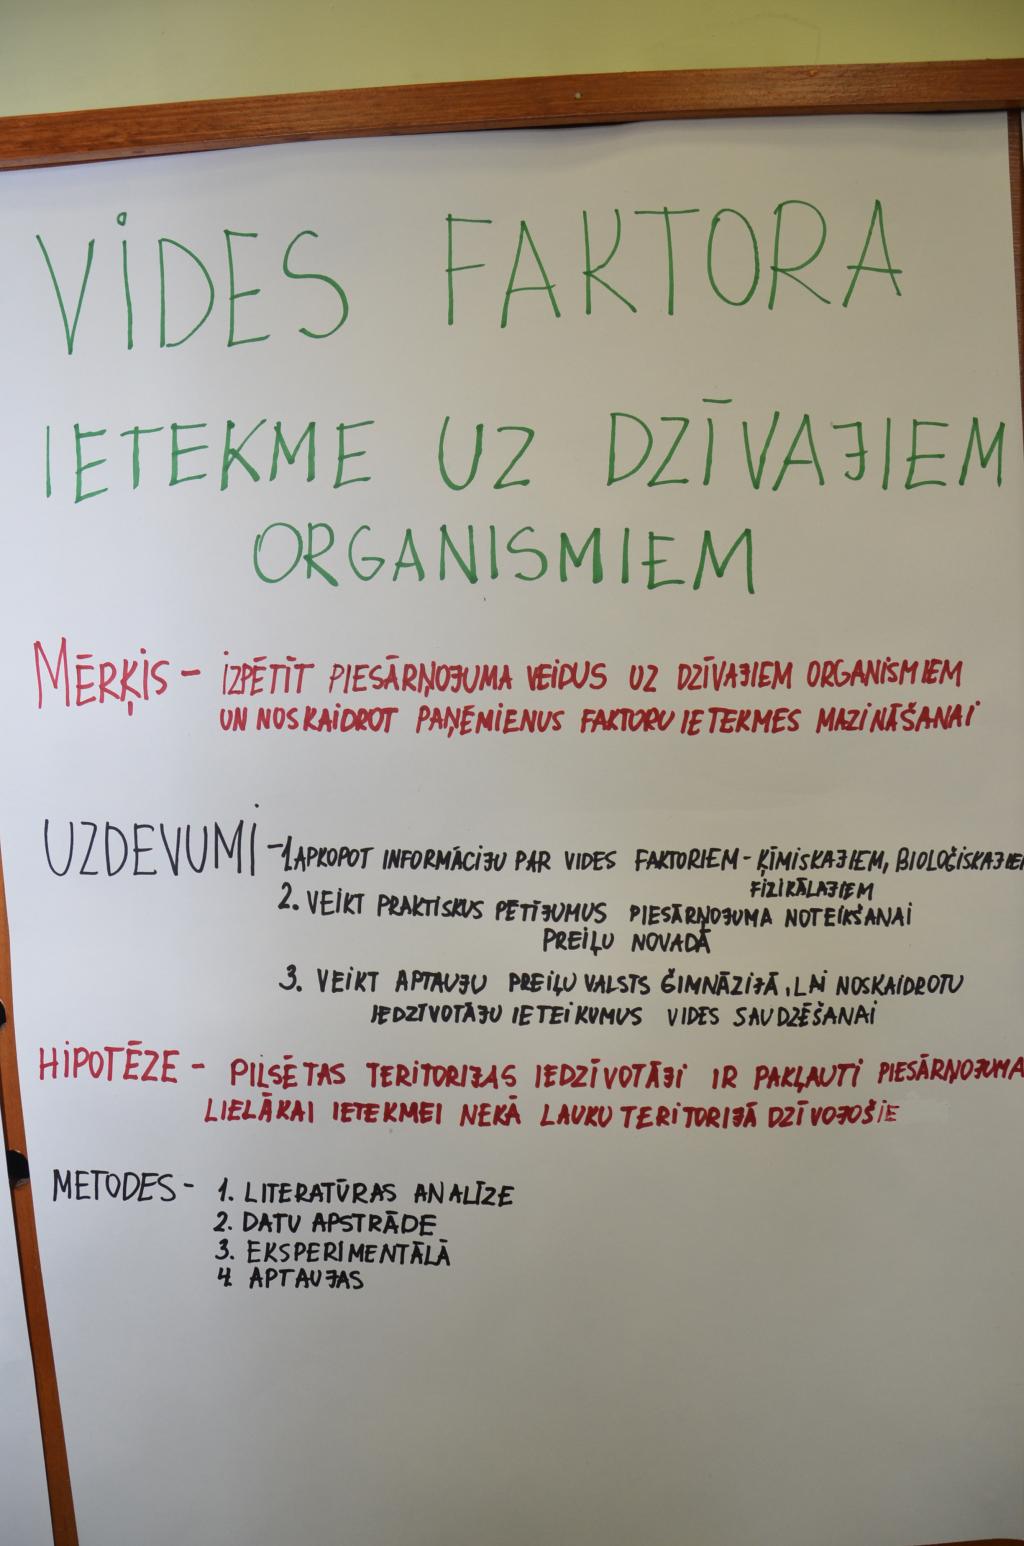 VIDES FAKTORA
IETEKME UZ DZĪVAJIEM
ORGANISMIEM
MĒRĶIS - IZPĒTĪT PIESĀRŅOJUMA VEIDUS UZ DZĪVAJIEM ORGANISMIEM
UN NOSKAIDROT PAŅĒMIENUS FAKTORU IETEKMES MAZINĀŠANAI
UZDEVUMI - 1. APKOPOT INFORMĀCIJU PAR VIDES FAKTORIEM - ĶĪMISKAJIEM, BIOLOĢISKAJIEM
FIZIKĀLAJIEM
2. VEIKT PRAKTISKUS PĒTĪJUMUS PIESĀRŅOJUMA NOTEIKŠANAI
PREIĻU NOVADĀ
3. VEIKT APTAUJU PREIĻU VALSTS ĢIMNĀZIJĀ, LAI NOSKAIDROTU
IEDZĪVOTĀJU IETEIKUMUS VIDES SAUDZĒŠANAI
HIPOTĒZE - PILSĒTAS TERITORIJAS IEDZĪVOTĀJI IR PAKĻAUTI PIESĀRŅOJUMA
LIELĀKAI IETEKMEI NEKĀ LAUKU TERITORIJĀ DZĪVOJOŠIE
METODES - 1. LITERATŪRAS ANALĪZE
2. DATU APSTRĀDE
3. EKSPERIMENTĀLĀ
4. APTAUJAS